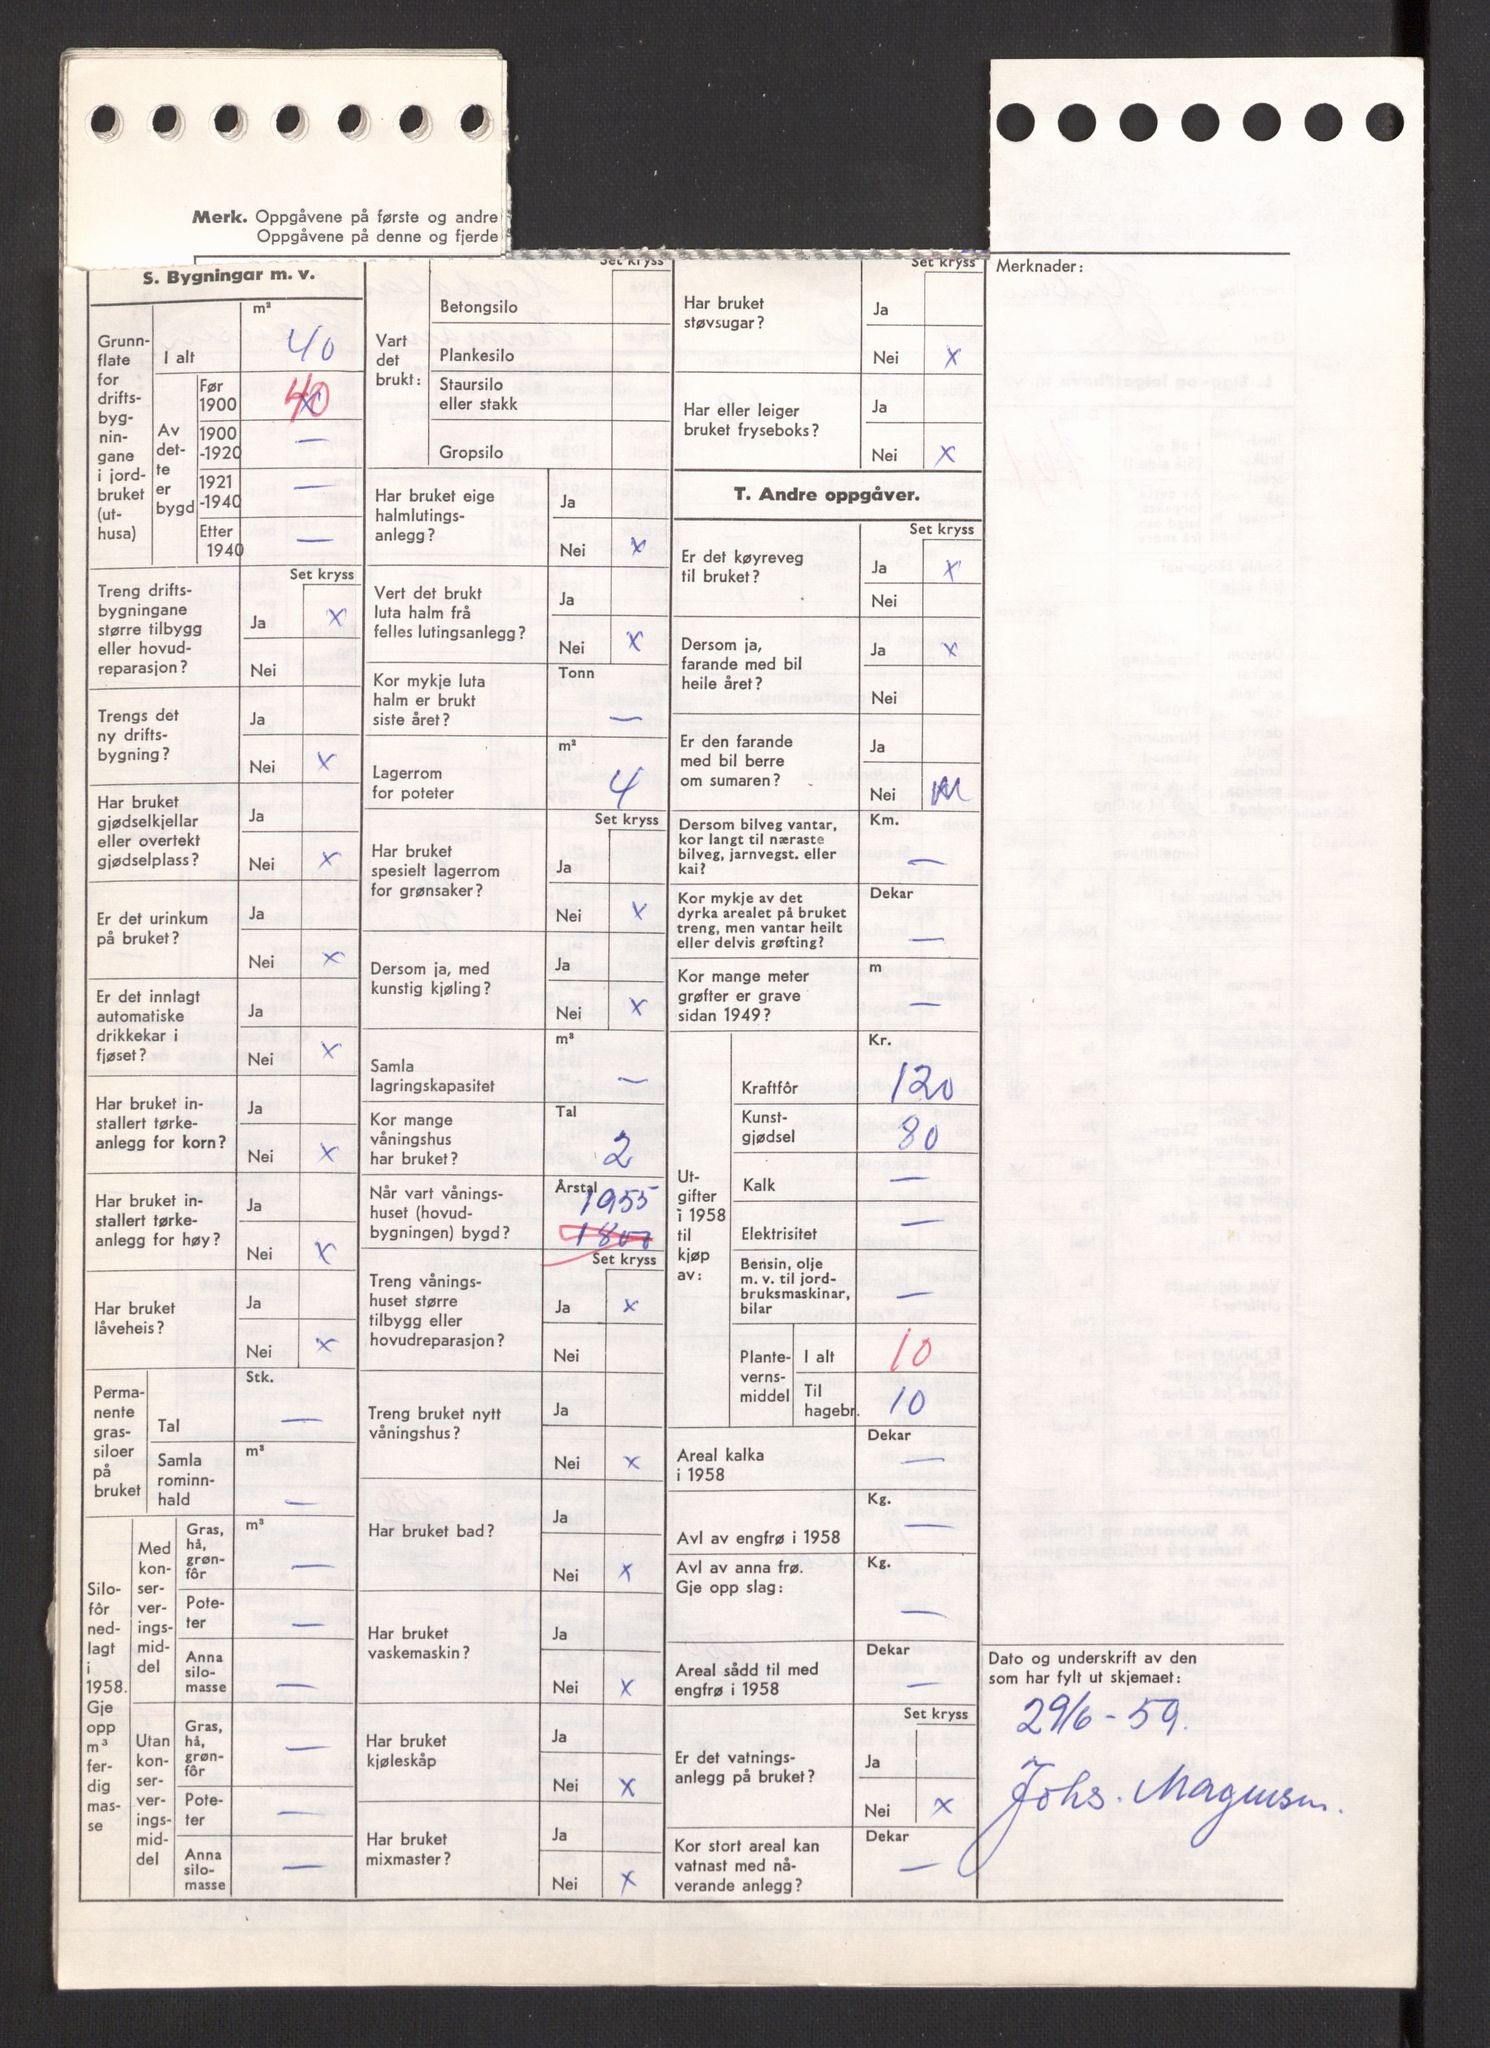 Merk. Oppgåvene på første og andre
Oppgåvene på denne og fjerde
S. Bygningar m. v.
m²
Grunn-
flate
for
drifts-
byg-
nin-
gane
i jord-
bruket
(ut-
husa)
I alt 40
Av
det-
te
er
bygd
Før
1900 40
1900
-1920 —
1921
-1940 —
Etter
1940 —
Set kryss
Treng drifts-
bygningane
større tilbygg
eller hovud-
reparasjon?
Ja x
Nei
Trengs det
ny drifts-
bygning?
Ja
Nei x
Har bruket
gjødselkjellar
eller overtekt
gjødselplass?
Ja
Nei x
Er det urinkum
på bruket?
Ja
Nei x
Er det innlagt
automatiske
drikkekar i
fjøset?
Ja
Nei x
Har bruket in-
stallert tørke-
anlegg for korn?
Ja
Nei x
Har bruket in-
stallert tørke-
anlegg for høy?
Ja
Nei x
Har bruket
låveheis?
Ja
Nei x
Perma-
nente
gras-
siloer
på
bruket
Stk.
Tal —
m³
Samla
rominn-
hald —
Silo-
fôr
ned-
lagt
i
1958.
Gje
opp
m³
fer-
dig
mas-
se
m³
Med
kon-
ser-
ver-
ings-
mid-
del
Gras,
hå,
grøn-
fôr —
Pote-
ter —
Anna
silo-
masse —
Utan
kon-
ser-
ver-
ings-
mid-
del
Gras,
hå,
grøn-
fôr —
Pote-
ter —
Anna
silo-
masse —
Set kryss
Vart
det
brukt:
Betongsilo
Plankesilo
Staursilo
eller stakk
Gropsilo
Har bruket eige
halmlutings-
anlegg?
Ja
Nei x
Vert det brukt
luta halm frå
felles lutingsanlegg?
Ja
Nei x
Kor mykje luta
halm er brukt
siste året?
Tonn
—
Lagerrom
for poteter
m²
4
Set kryss
Har bruket
spesielt lagerrom
for grønsaker?
Ja
Nei x
Dersom ja, med
kunstig kjøling?
Ja
Nei x
Samla
lagringskapasitet
m³
—
Kor mange
våningshus
har bruket?
Tal
2
Når vart vånings-
huset (hovud-
bygningen) bygd?
Årstal
1955
1800
Set kryss
Treng vånings-
huset større
tilbygg eller
hovudreparasjon?
Ja x
Nei
Treng bruket nytt
våningshus?
Ja
Nei x
Har bruket bad?
Ja
Nei x
Har bruket
vaskemaskin?
Ja
Nei x
Har bruket
kjøleskåp
Ja
Nei x
Har bruket
mixmaster?
Ja
Nei x
Set kryss
Har bruket
støvsugar?
Ja
Nei x
Har eller leiger
bruket fryseboks?
Ja
Nei x
T. Andre oppgåver.
Set kryss
Er det køyreveg
til bruket?
Ja x
Nei
Dersom ja,
farande med bil
heile året?
Ja x
Nei
Er den farande
med bil berre
om sumaren?
Ja
Nei
Dersom bilveg vantar,
kor langt til næraste
bilveg, jarnvegst. eller
kai?
Km.
—
Kor mykje av det
dyrka arealet på bruket
treng, men vantar heilt
eller delvis grøfting?
Dekar
—
Kor mange meter
grøfter er grave
sidan 1949?
m
—
Ut-
gifter
i 1958
til
kjøp
av:
Kr.
Kraftfôr 120
Kunst-
gjødsel 80
Kalk —
Elektrisitet —
Bensin, olje
m. v. til jord-
bruksmaskinar,
bilar —
Plante-
verns-
middel
I alt 10
Til
hagebr. 10
Areal kalka
i 1958
Dekar
—
Avl av engfrø i 1958
Kg.
—
Avl av anna frø.
Gje opp slag:
Kg.
—
Areal sådd til med
engfrø i 1958
Dekar
—
Set kryss
Er det vatnings-
anlegg på bruket?
Ja
Nei x
Kor stort areal kan
vatnast med nå-
verande anlegg?
Dekar
—
Merknader:
Dato og underskrift av den
som har fylt ut skjemaet:
29/6 - 59.
Johs. Magnusen.